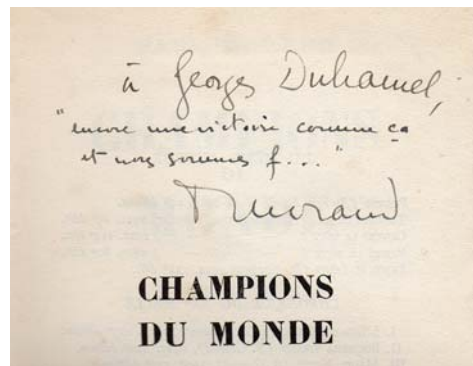 à Georges Duhamel,
"encore une victoire comme ça
et nous sommes f..."
PMorand
CHAMPIONS
DU MONDE